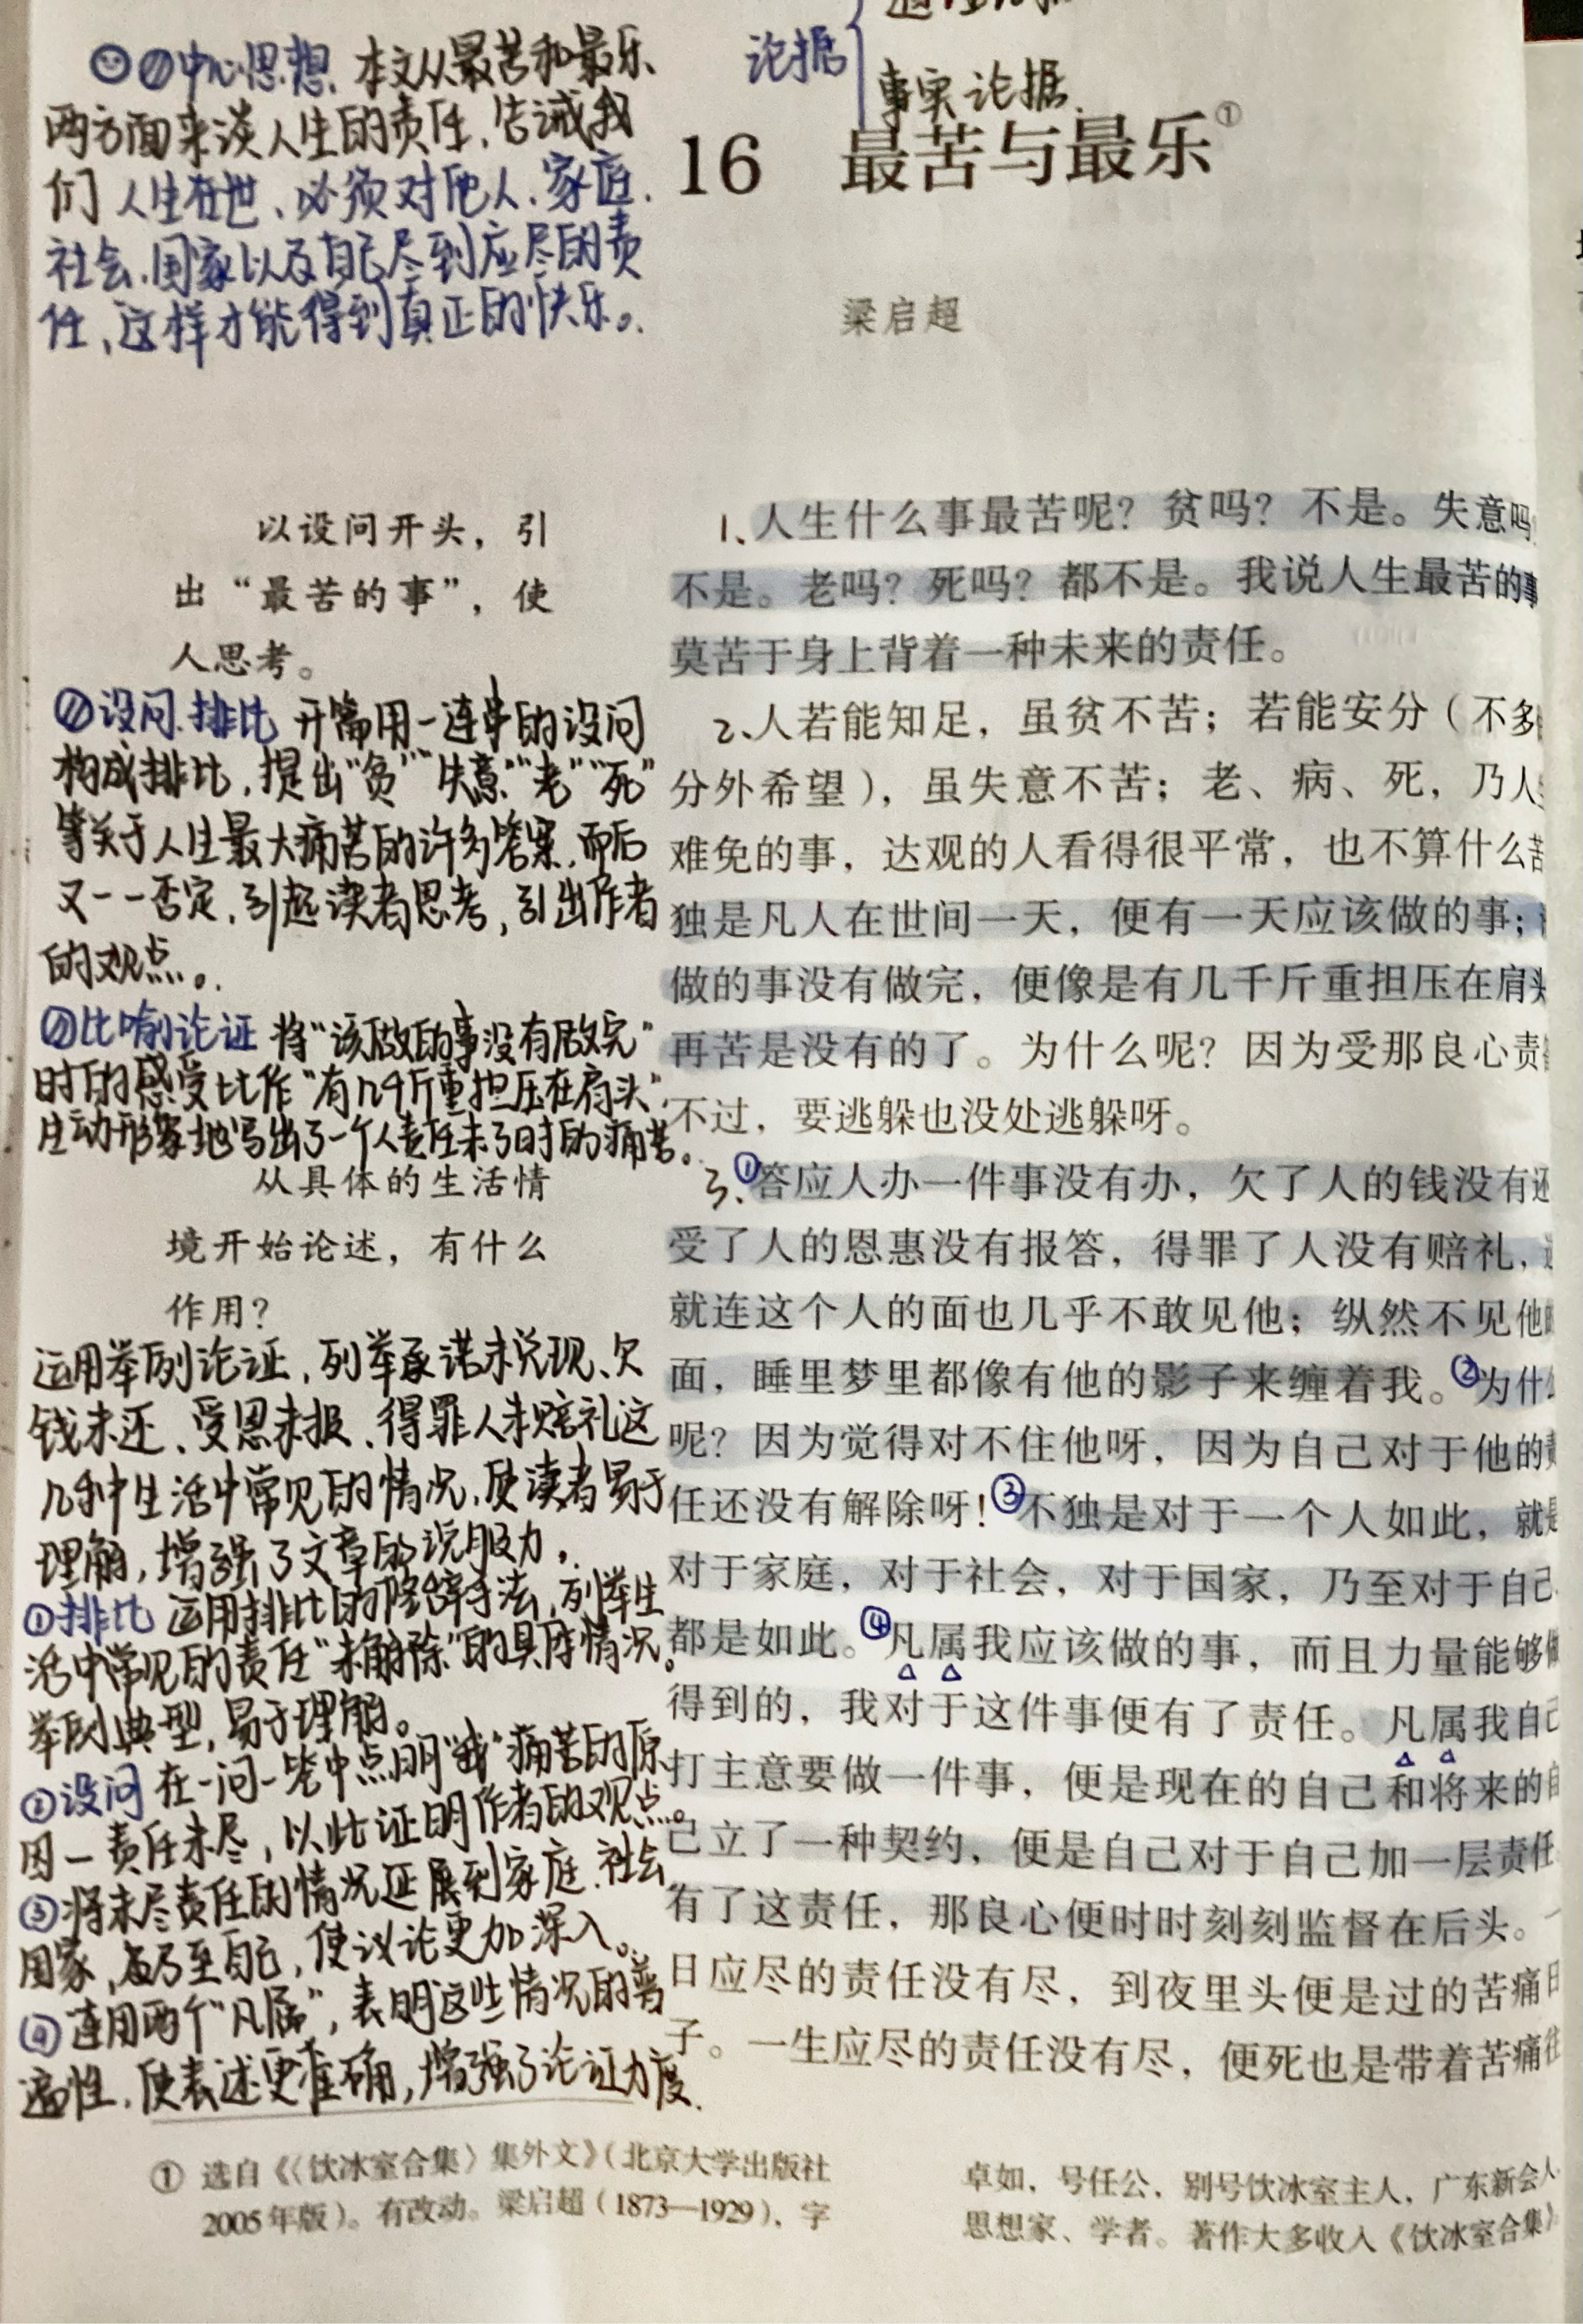 论据
事实论据
中心思想、本文从最苦和最乐
两方面来谈人生的责任,告诫我
们人生在世、必须对他人、家庭、
社会、国家以及自己尽到应尽的责
任、这样才能得到真正的快乐。
16 最苦与最乐①
梁启超
以设问开头，引
出“最苦的事”，使
人思考。
设问、排比 开篇用一连串的设问
构成排比,提出“贫”“失意”“老”“死”
等关于人生最大痛苦的许多答案,而后
又一一否定,引起读者思考,引出作者
的观点。
比喻论证 将“该做的事没有做完”
时的感受比作“有几千斤重担压在肩头”,
生动形象地写出了一个人责任未了时的痛苦。
从具体的生活情
境开始论述，有什么
作用？
运用举例论证,列举承诺未兑现、欠
钱未还、受恩未报、得罪人未赔礼这
几种生活中常见的情况,使读者易于
理解,增强了文章的说服力。
①排比 运用排比的修辞手法,列举生
活中常见的责任“未解除”的具体情况。
举例典型,易于理解。
②设问 在一问一答中点明“我”痛苦的原
因一责任未尽,以此证明作者的观点。
③将未尽责任的情况延展到家庭、社会、
国家,乃至自己,使议论更加深入。
④连用两个“凡属”,表明这些情况的普
遍性,使表述更准确,增强了论证力度.
1、人生什么事最苦呢？贫吗？不是。失意吗
不是。老吗？死吗？都不是。我说人生最苦的事
莫苦于身上背着一种未来的责任。
2、人若能知足，虽贫不苦；若能安分（不多
分外希望），虽失意不苦；老、病、死，乃人
难免的事，达观的人看得很平常，也不算什么苦
独是凡人在世间一天，便有一天应该做的事；
做的事没有做完，便像是有几千斤重担压在肩头
再苦是没有的了。为什么呢？因为受那良心责
不过，要逃躲也没处逃躲呀。
3、①答应人办一件事没有办，欠了人的钱没有还
受了人的恩惠没有报答，得罪了人没有赔礼，
就连这个人的面也几乎不敢见他；纵然不见他
面，睡里梦里都像有他的影子来缠着我。②为什
呢？因为觉得对不住他呀，因为自己对于他的责
任还没有解除呀！③不独是对于一个人如此，就是
对于家庭，对于社会，对于国家，乃至对于自己
都是如此。④凡属我应该做的事，而且力量能够做
得到的，我对于这件事便有了责任。凡属我自己
打主意要做一件事，便是现在的自己和将来的自
己立了一种契约，便是自己对于自己加一层责任
有了这责任，那良心便时时刻刻监督在后头。一
日应尽的责任没有尽，到夜里头便是过的苦痛日
子。一生应尽的责任没有尽，便死也是带着苦痛往
① 选自《〈饮冰室合集〉集外文》（北京大学出版社
2005年版）。有改动。梁启超（1873—1929），字
卓如，号任公，别号饮冰室主人，广东新会人
思想家、学者。著作大多收入《饮冰室合集》